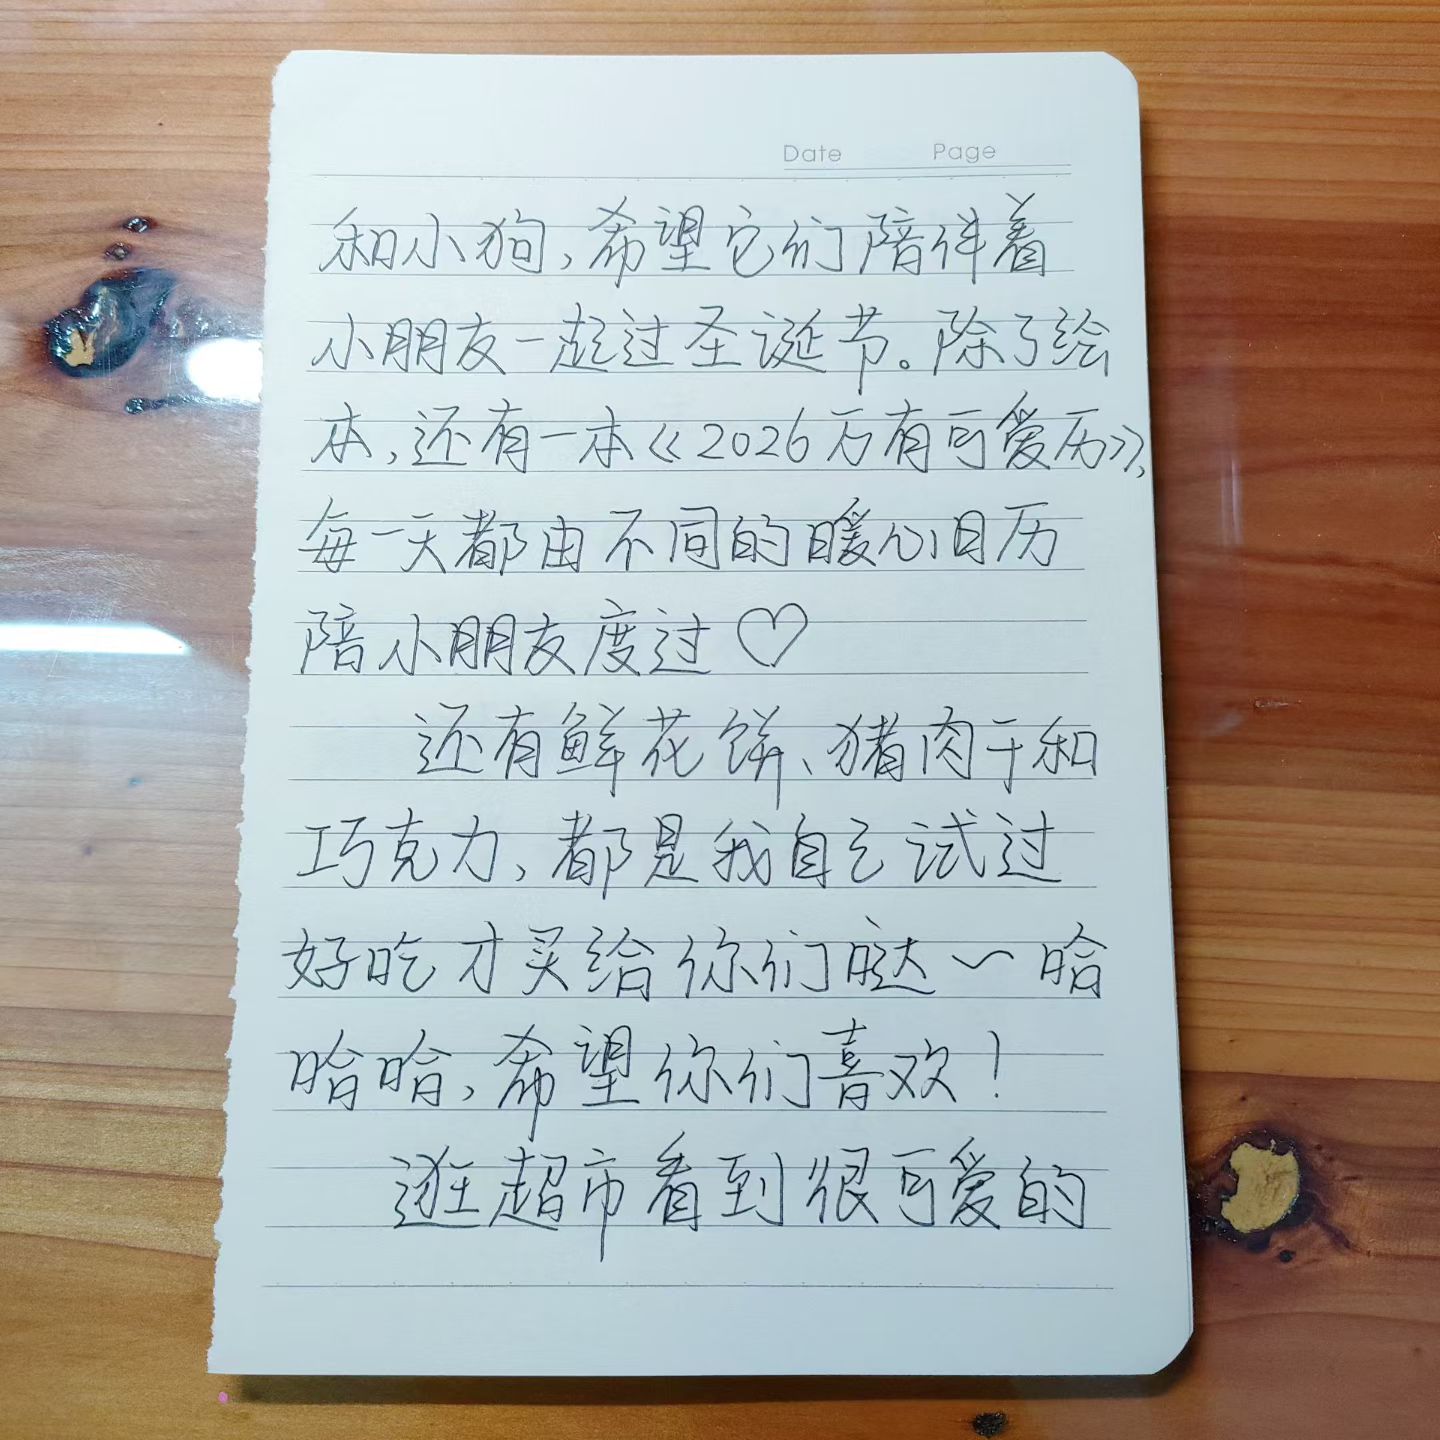 Date Page
和小狗,希望它们陪伴着
小朋友一起过圣诞节。除了绘
本,还有一本《2026万有可爱历》,
每一天都由不同的暖心日历
陪小朋友度过♡
还有鲜花饼、猪肉干和
巧克力,都是我自己试过
好吃才买给你们哒~哈
哈哈,希望你们喜欢!
逛超市看到很可爱的